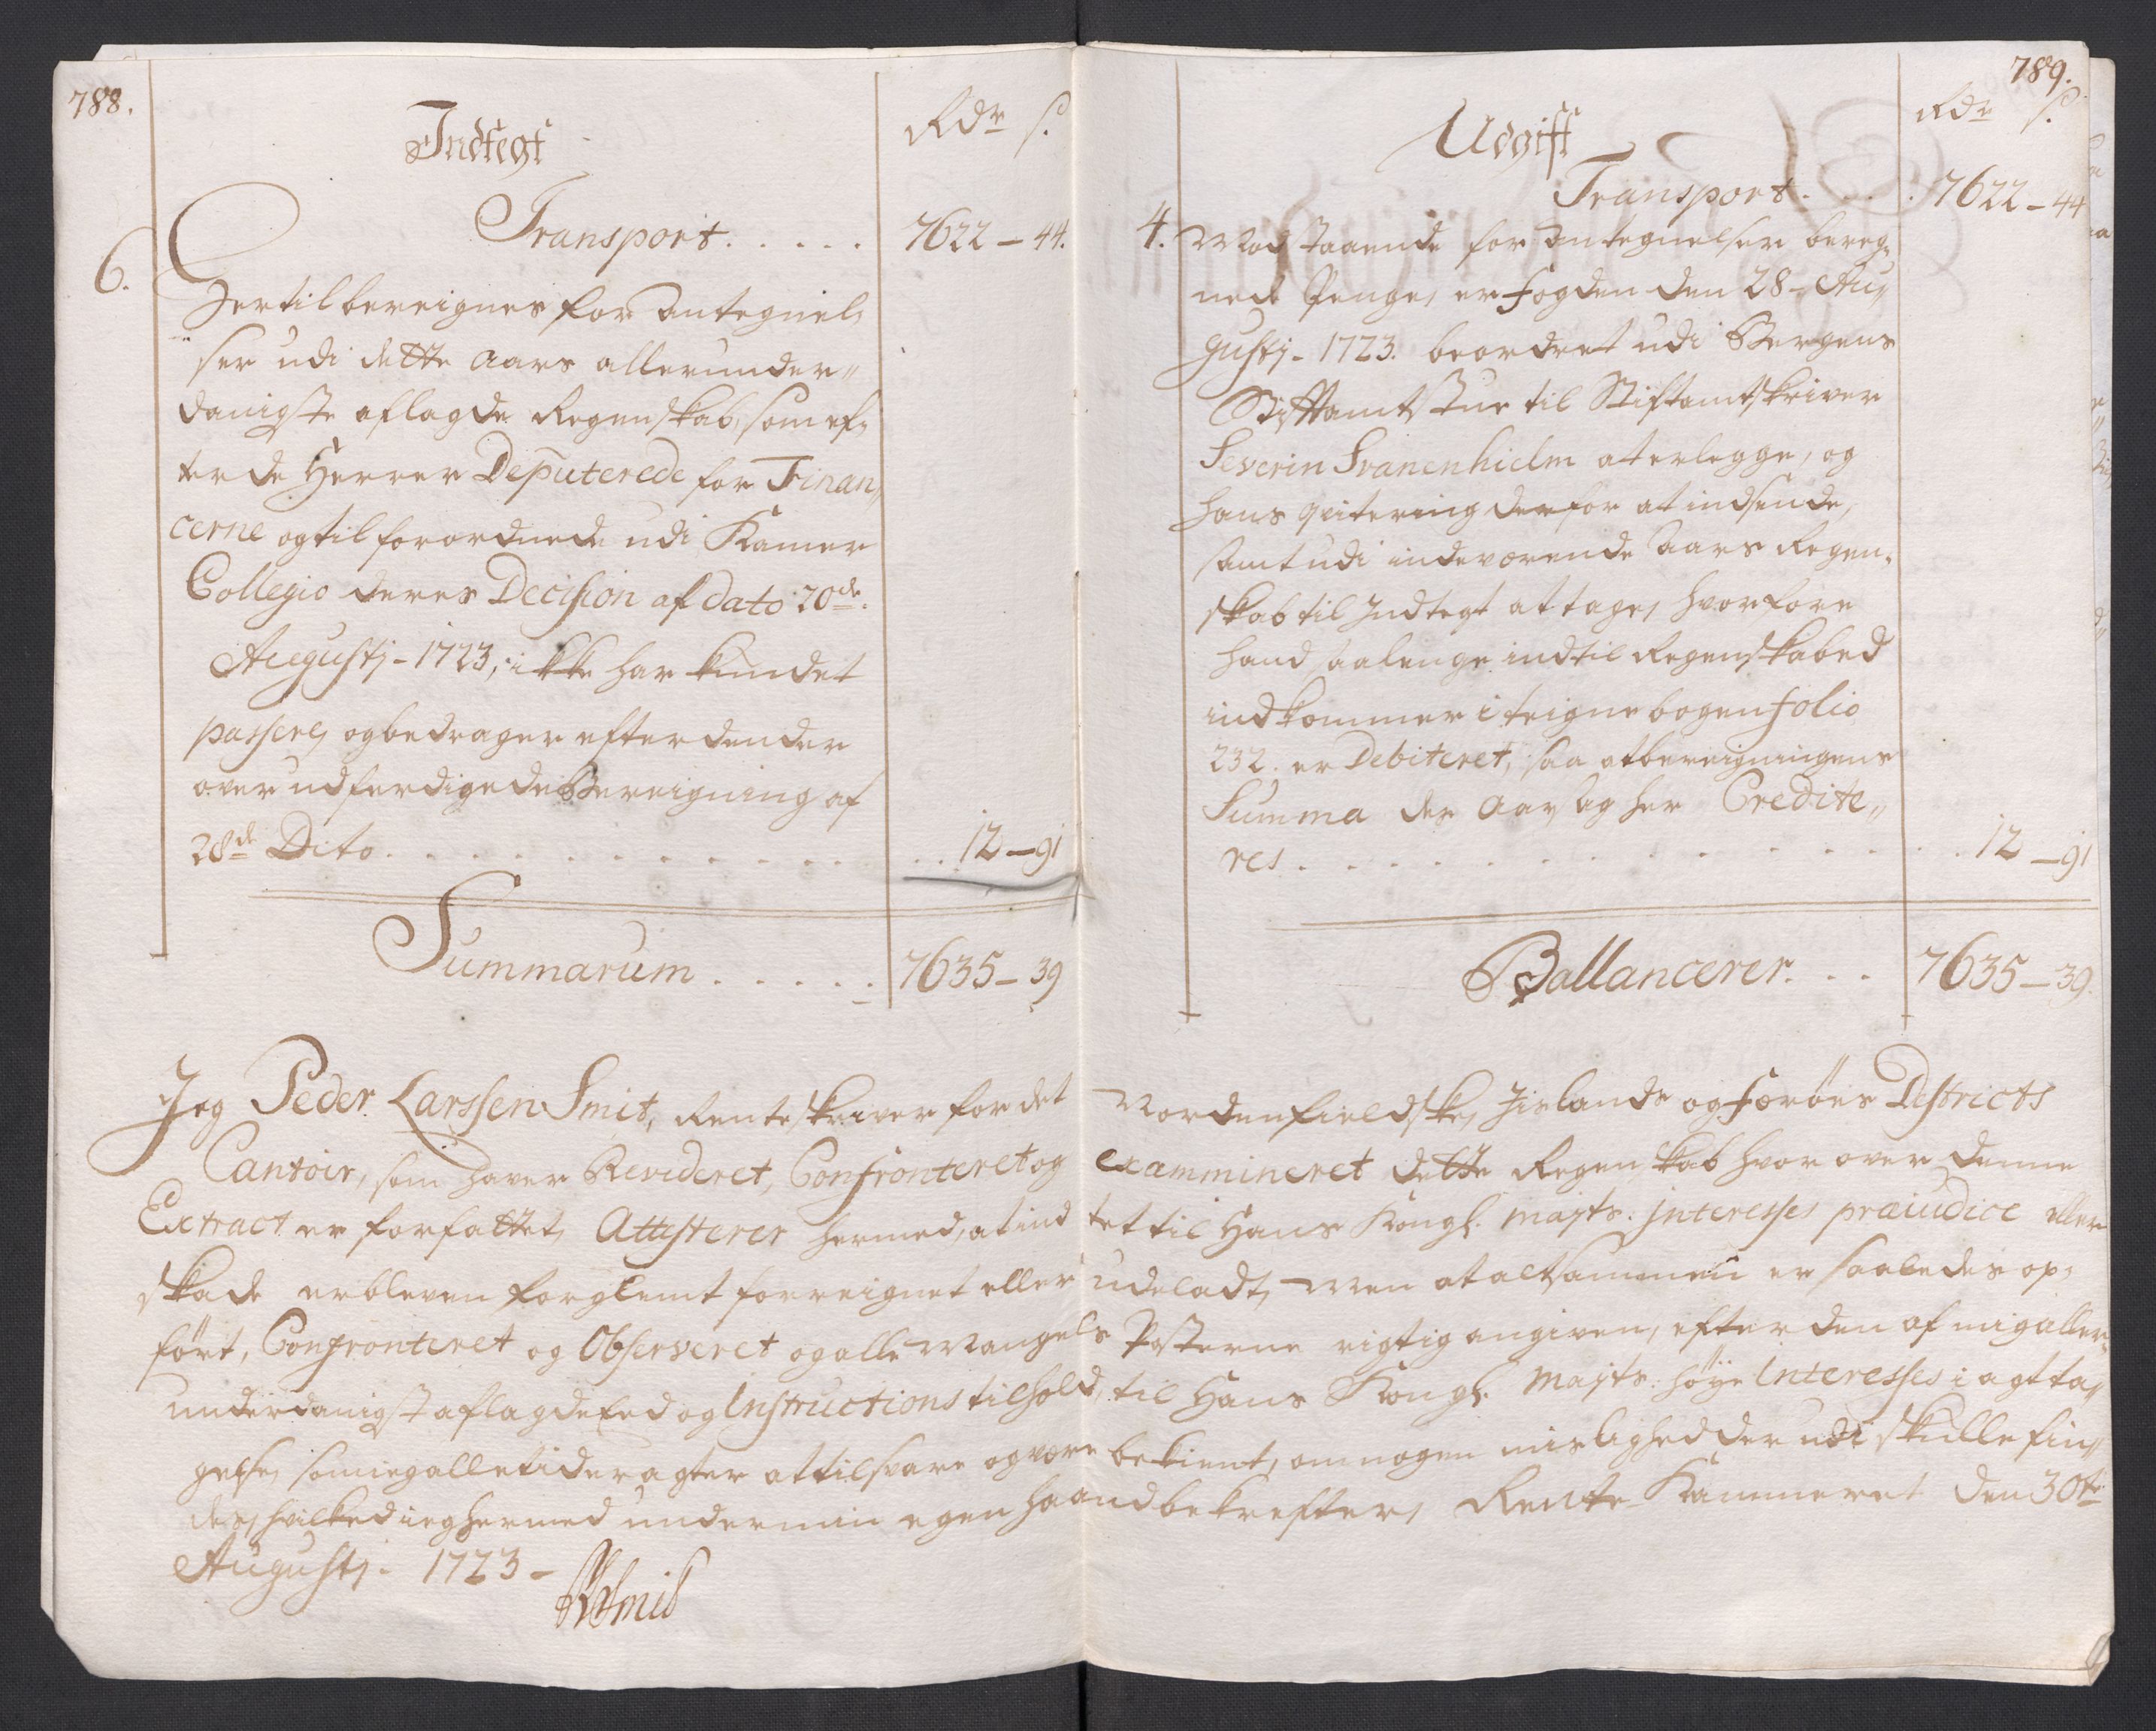 788.
Indtegt
Rdr s.
Transport. . . . . 7622 – 44.
6. Hertil bereignes for Antegnel,
ser udi dette Aars allerunder„
danigste aflagde Regenskab, som ef,
ter de Herrer Deputerede for Finan„
cerne og tilforordnede udi Kamer
Collegio deres Decision af dato 20de.
Augustj – 1723, ikke har kundet
passere, og bedrager efter den der
over udferdigede Bereigning af
28de Dito. . . . . . . . . . . 12 – 91
Summarum . . . . . 7635 – 39
789.
Udgift
Rdr s.
Transport. . . . 7622 – 44
4. Modstaaende for Antegnelser bereg„
nede Penge, er Fogden den 28 – Au„
gustj – 1723. beordret udi Bergens
Stiftamtstue til Stiftamtskriver
Severin Svanenhielm at erlegge, og
hans qvitering derfor at indsende,
samt udi indeværende Aars Regen,
skab til Indtegt at tage, hvorfore
hand saalenge indtil Regenskabed
indkommer i teignebogen folio
232. er Debiteret, saa at bereigningens
Summa der Aarsag her Credite„
res . . . . . . . . . . . . 12 – 91
Ballancerer. . . 7635 – 39.
Jeg Peder Larssen Smit, Renteskriver for det Nordenfieldske, Jislands og Færöes Districts
Cantoir, som haver Revideret, Confronteret og exammineret dette Regenskab hvor over denne
Extract er forfattet, Attesterer hermed, at indtet til Hans Kongl. Mayts. jnteresses præiudice eller
skade er bleven forglemt forreignet eller udeladt, Men at altsammen er saaledes op,
fört, Confronteret og Observeret og alle Mangels Posterne rigtig angiven, efter den af mig aller„
underdanigst aflagde Eed og Instructions tilhold, til Hans Kongl. Mayts. höye Interesses i agt ta„
gelse, som ieg alle tider agter at tilsvare og være bekient, om nogen mislighed der udi skulle fin„
des, hvilked ieg hermed under min egen haand bekrefter, Rente Kammeret den 30te
Augustj – 1723 –
PLSmit